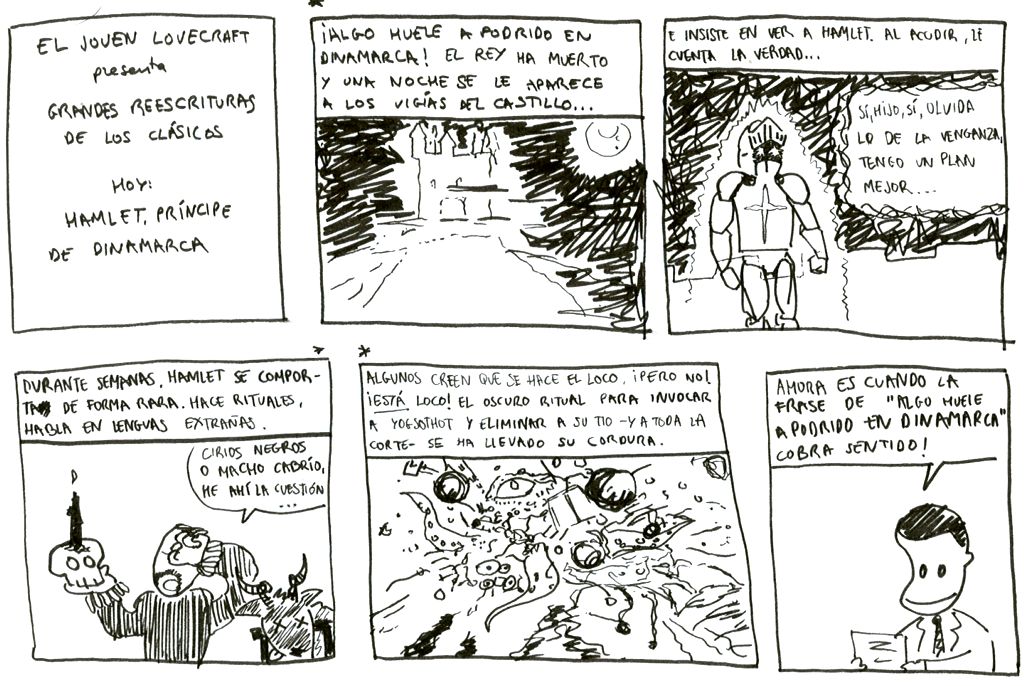 EL JOVEN LOVECRAFT
presenta
GRANDES REESCRITURAS
DE LOS CLÁSICOS
HOY:
HAMLET, PRÍNCIPE
DE DINAMARCA
*
¡ALGO HUELE A PODRIDO EN
DINAMARCA! EL REY HA MUERTO
Y UNA NOCHE SE LE APARECE
A LOS VIGÍAS DEL CASTILLO...
E INSISTE EN VER A HAMLET. AL ACUDIR, LE
CUENTA LA VERDAD...
SÍ, HIJO, SÍ, OLVIDA
LO DE LA VENGANZA,
TENGO UN PLAN
MEJOR...
DURANTE SEMANAS, HAMLET SE COMPOR-
TA DE FORMA RARA. HACE RITUALES,
HABLA EN LENGUAS EXTRAÑAS.
CIRIOS NEGROS
O MACHO CABRÍO,
HE AHÍ LA CUESTIÓN
...
*
ALGUNOS CREEN QUE SE HACE EL LOCO, ¡PERO NO!
¡ESTÁ LOCO! EL OSCURO RITUAL PARA INVOCAR
A YOGSOTHOT Y ELIMINAR A SU TÍO -Y A TODA LA
CORTE- SE HA LLEVADO SU CORDURA.
AHORA ES CUANDO LA
FRASE DE "ALGO HUELE
A PODRIDO EN DINAMARCA"
COBRA SENTIDO!